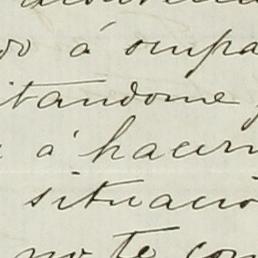 do á ocupa
itandome
á hacer
situació
no te con